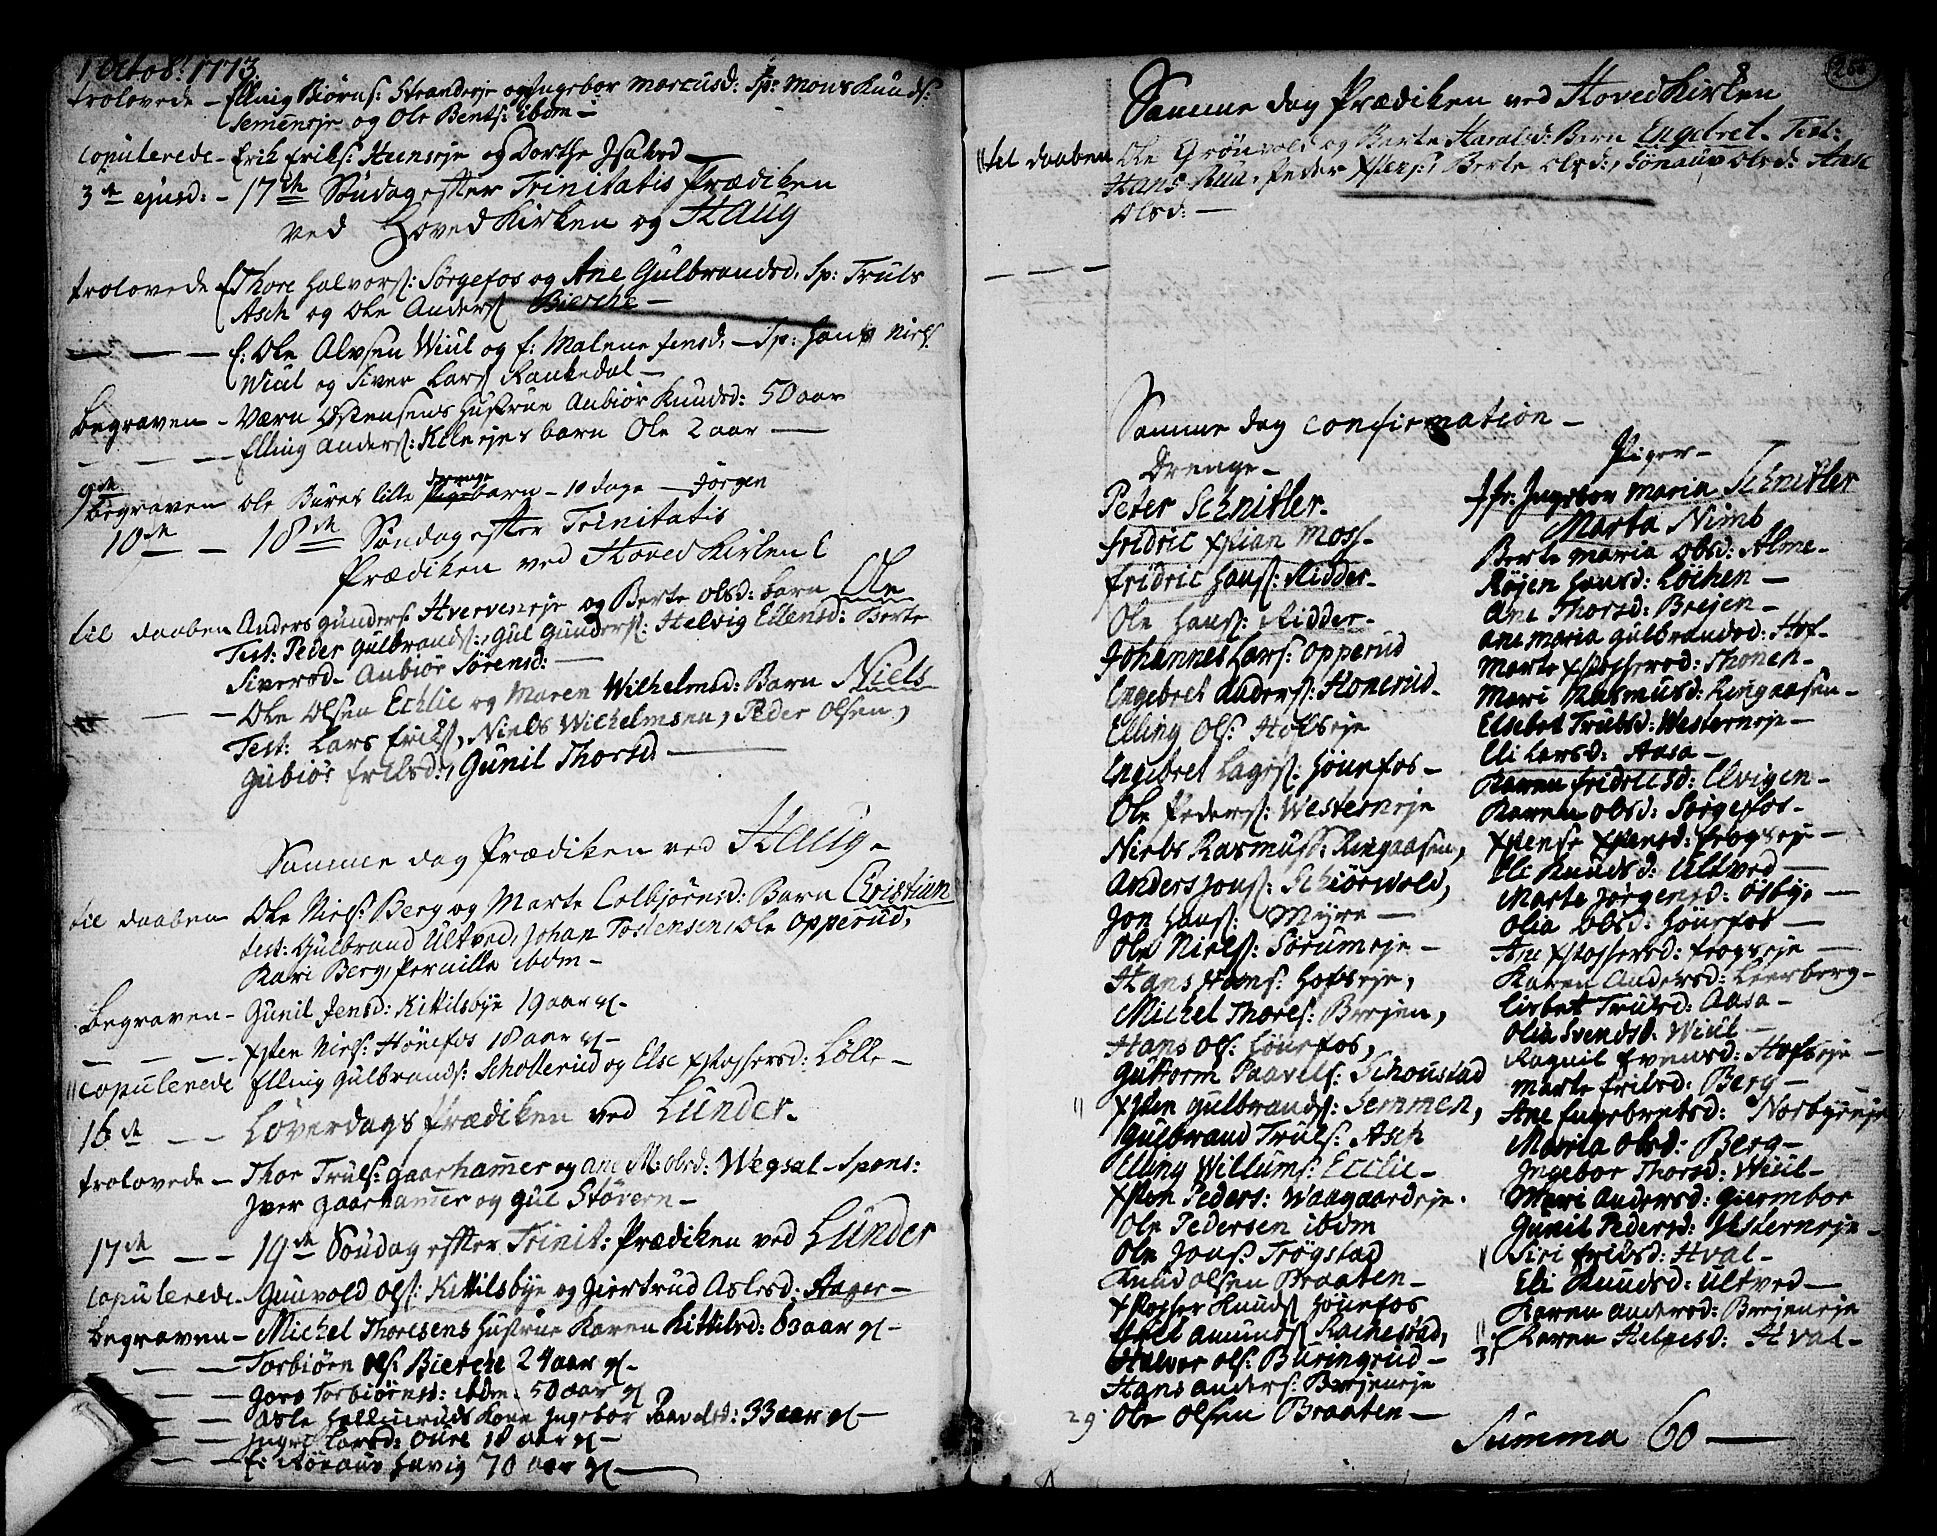 1 Octobr 1773.
trolovede - Elling Biørns: Strandeje og Ingebor Marcusd: Sp: Mons Knuds:
Semenseje og Ole Bents: ibdm -
Copulerede - Erik Eriks: Heenseje og Dorthe Isaksd -
3de ejusd: - 17de Søndag efter Trinitatis Prædiken
ved Hoved Kirken og Haug
trolovede Thore Halvors: Sørgefos og Ane Gulbrandsd: Sp: Truls
Asch og Ole Anders: Bierche -
- - - E: Ole Alvsen Wiul og E: Malene Jensd: - Sp: Hans Niels:
Wiul og Siver Lars: Rankedal -
Begraven - Værn Østensens Hustrue Anbiør Knudsd: 50 aar
- - - Elling Anders: Kilesejes barn Ole 2 aar -
9de begraven Ole Bures lille drenge barn - 10 dage - Jørgen
10de - - 18de Søndag efter Trinitatis
Prædiken ved Hoved Kirken
til daaben Anders Gunders: Hverveneje og Berte Olsd: barn Ole
Test: Peder Gulbrands:, Gul Gunders: Helvig Ellensd: Berte
Siversd - Anbiør Sørensd: -
- - Ole Olsen Ecklie og Maren Wilhelmsd: Barn Niels
Test: Lars Eriks:, Niels Wilhelmsen, Peder Olsen,
Gubiør Eriksd:, Gunil Thorsd -
Samme dag Prædiken ved Haug -
til daaben Ole Niels: Berg og Marte Colbjørnsd: Barn Christian
test: Gulbrand Ultved, Johan Tostensen, Ole Opperud,
Kari Berg, Pernille ibdm -
Begraven - Gunil Jensd: Kittilsbye 19 aar gl -
- - - Xsten Niels: Hønefos 18 aar gl -
copulerede Elling Gulbrands: Schollerud og Else Xstophersd: Lølle -
16de - - Løverdags Prædiken ved Lunder -
trolovede - Thor Truls: Gaarhamer og Ane M: Olsd: Wegsal - Spons:
Iver Gaarhamer og Gul Støvern -
17de - - 19de Søndag efter Trinit: Prædiken ved Lunder
Copulerede - Gunvold Ols: Kittilsbye og Giertrud Aslesd: Hager -
Begraven - Michel Thoresens Hustrue Karen Kittilsd: 63 aar gl -
- - Torbiørn Ols: Bierche 24 aar gl -
- - Goro Torbiørnsd: ibdm - 50 aar gl
- - Asle Hallineruds Kone Ingebor Paavelsd: 33 aar gl -
- - Ingri Larsd: Oure 18 aar gl -
- - E: Rønauv Havig 70 aar gl -
Samme dag Prædiken ved Hoved Kirken
til daaben Ole Grønvold og Berte Haralsd: Barn Engebret - Test:
Hans Buu, Peder Xstens:, Berte Olsd:, Sønauv Olsd: Aase
Olsd: -
Samme dag Confirmation -
Drenge -
Peter Schnitler -
Fridric Xstian Moss -
Fridric Hans: Ridder -
Ole Hans: Ridder -
Johannes Lars: Opperud
Engebret Anders: Honerud -
Elling Ols: Hofseje
Engebret Lages: Hønefos -
Ole Peders: Westerneje
Niels Rasmuss: Ringaasen,
Anders Jons: Schiørwold,
Jon Hans: Myre -
Ole Niels: Sørumeje -
Hans Hans: Hofseje,
Michel Thores: Brejen,
Hans Ols: Hønefos,
Guttorm Paavels: Schoustad
Xsten Gulbrands: Semmen,
Gulbrand Truls: Asch
Elling Willums: Ecclie -
Xsten Peders: Waagaardeje -
Ole Pedersen ibdm
Ole Jons: Trøgstad
Knud Olsen Braaten -
Xstopher Knuds: Hønefos
Axel Amunds: Rachestad,
Halvor Ols: Buringrud -
Hans Anders: Brejeneje
29 Ole Olsen Braaten -
Piger -
Jfr: Ingebor Maria Schnitler
Marta Nims
Berte Maria Olsd: Alme -
Røjen Hansd: Løchen -
Ane Thorsd: Brejen -
Ane Maria Gulbrandsd: Hof -
Marte Xstophersd: Thonch -
Mari Rasmusd: Ringaasen -
Elsebet Trulsd: Westerneje -
Eli Larsd: Aasa -
Karen Fridricsd: Elvigen -
Karen Olsd: Sørgefos -
Xstense Xstensd: Frogseje -
Eli Knudsd: Ultved -
Marte Jørgensd: Østbye -
Olia Olsd: Hønefos -
Ane Xstophersd: Frogseje -
Karen Andersd: Leerberg -
Lisbet Trulsd: Aasa -
Olia Svendsd: Wiul -
Ragnil Evensd: Hofseje -
Marte Eriksd: Berg -
Ane Engebretsd: Norbyeeje
Maria Olsd: Berg -
Ingebor Thorsd: Wiul -
Mari Andersd: Giermboe
Gunil Pedersd: Vesterneje -
Siri Eriksd: Hval -
Eli Knudsd: Ultved -
Karen Andersd: Brejeneje
31 Karen Helgesd: Hval -
Summa 60 -